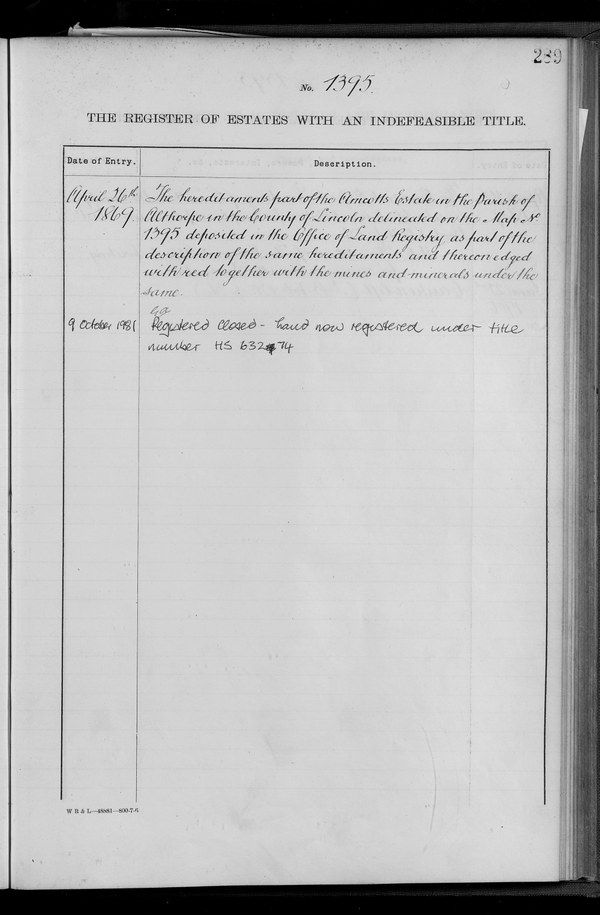 289
No. 1395.
THE REGISTER OF ESTATES WITH AN INDEFEASIBLE TITLE.
Date of Entry.
Description.
April 26th
1869
The hereditaments part of the Amcotts Estate in the Parish of
Althorpe in the County of Lincoln delineated on the Map No
1395 deposited in the Office of Land Registry as part of the
description of the same hereditaments and thereon edged
with red together with the mines and minerals under the
same.
9 October 1981
Registered closed - land now registered under title
number HS 63274
W B & L—48881—800-7-6